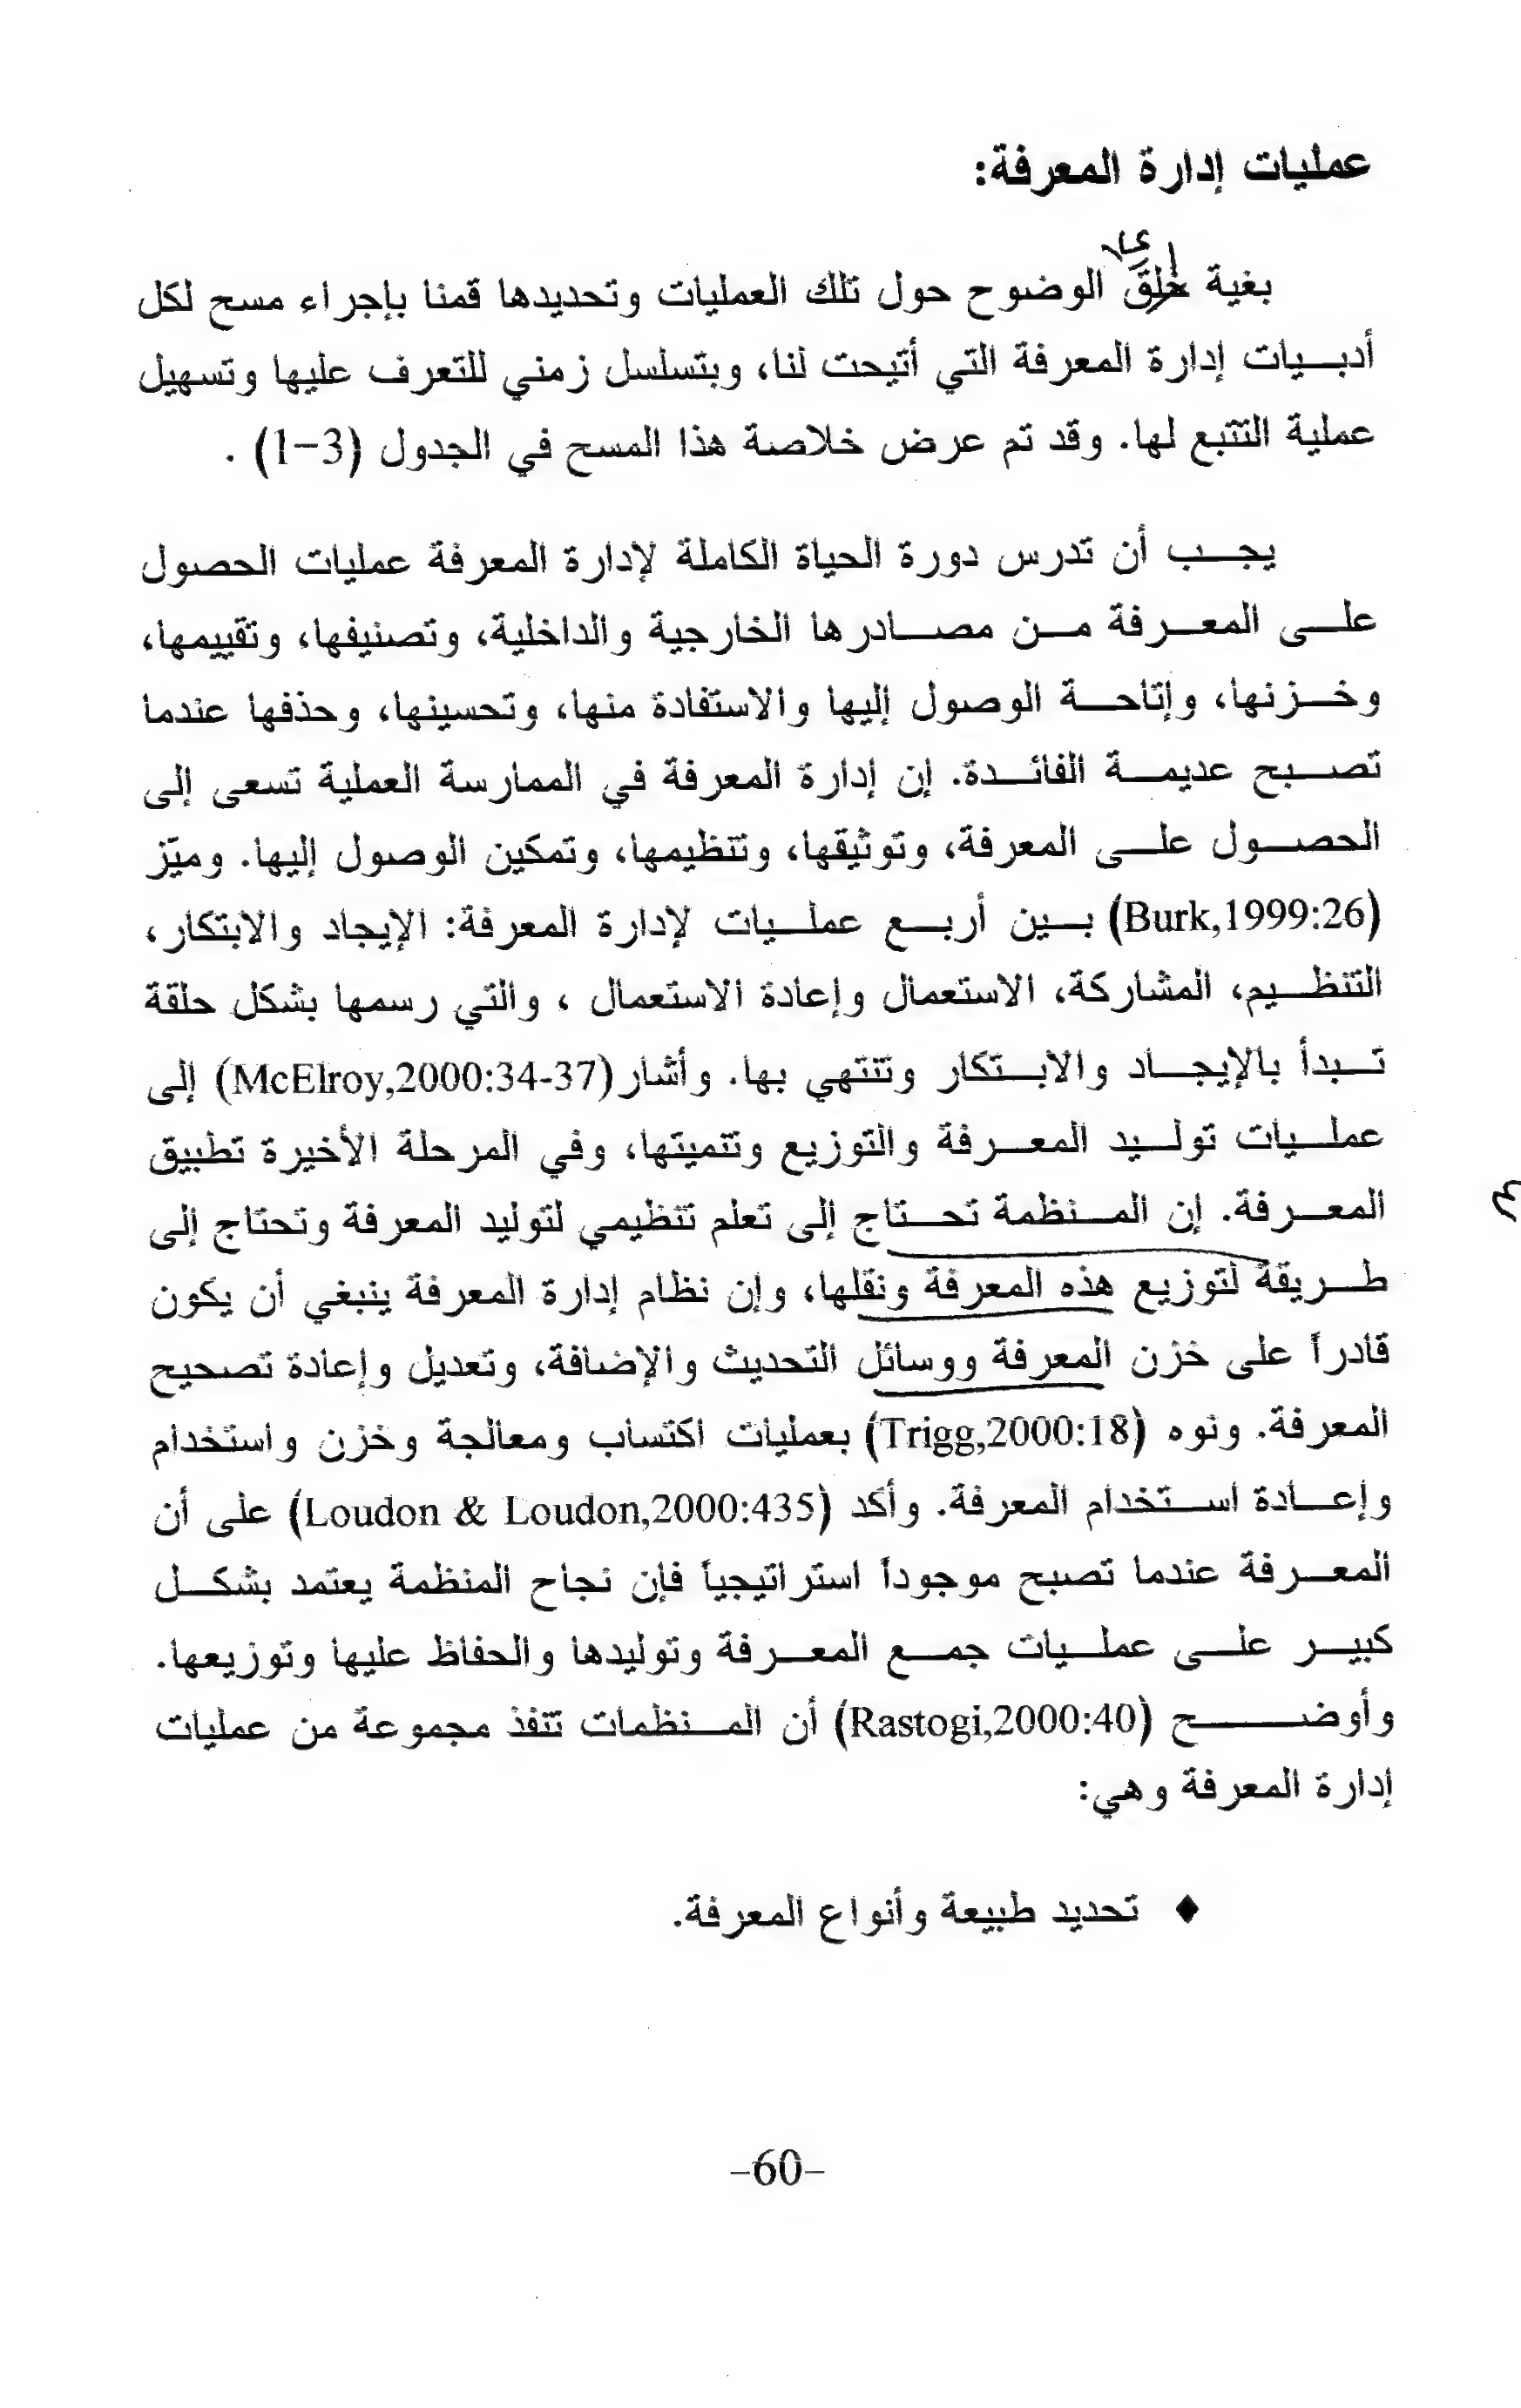 عمليات إدارة المعرفة:
بغية خلق الوضوح حول تلك العمليات وتحديدها قمنا بإجراء مسح لكل
أدبيات إدارة المعرفة التي أتيحت لنا، وبتسلسل زمني للتعرف عليها وتسهيل
عملية التتبع لها. وقد تم عرض خلاصة هذا المسح في الجدول (3-1) .
يجب أن تدرس دورة الحياة الكاملة لإدارة المعرفة عمليات الحصول
على المعرفة من مصادرها الخارجية والداخلية، وتصنيفها، وتقييمها،
وخزنها، وإتاحة الوصول إليها والاستفادة منها، وتحسينها، وحذفها عندما
تصبح عديمة الفائدة. إن إدارة المعرفة في الممارسة العملية تسعى إلى
الحصول على المعرفة، وتوثيقها، وتنظيمها، وتمكين الوصول إليها. وميّز
(Burk,1999:26) بين أربع عمليات لإدارة المعرفة: الإيجاد والابتكار،
التنظيم، المشاركة، الاستعمال وإعادة الاستعمال ، والتي رسمها بشكل حلقة
تبدأ بالإيجاد والابتكار وتنتهي بها. وأشار(McElroy,2000:34-37) إلى
عمليات توليد المعرفة والتوزيع وتنميتها، وفي المرحلة الأخيرة تطبيق
المعرفة. إن المنظمة تحتاج إلى تعلم تنظيمي لتوليد المعرفة وتحتاج إلى
طريقة لتوزيع هذه المعرفة ونقلها، وإن نظام إدارة المعرفة ينبغي أن يكون
قادراً على خزن المعرفة ووسائل التحديث والإضافة، وتعديل وإعادة تصحيح
المعرفة. ونوه (Trigg,2000:18) بعمليات اكتساب ومعالجة وخزن واستخدام
وإعادة استخدام المعرفة. وأكد (Loudon & Loudon,2000:435) على أن
المعرفة عندما تصبح موجوداً استراتيجياً فإن نجاح المنظمة يعتمد بشكل
كبير على عمليات جمع المعرفة وتوليدها والحفاظ عليها وتوزيعها.
وأوضح (Rastogi,2000:40) أن المنظمات تنفذ مجموعة من عمليات
إدارة المعرفة وهي:
♦ تحديد طبيعة وأنواع المعرفة.
-60-